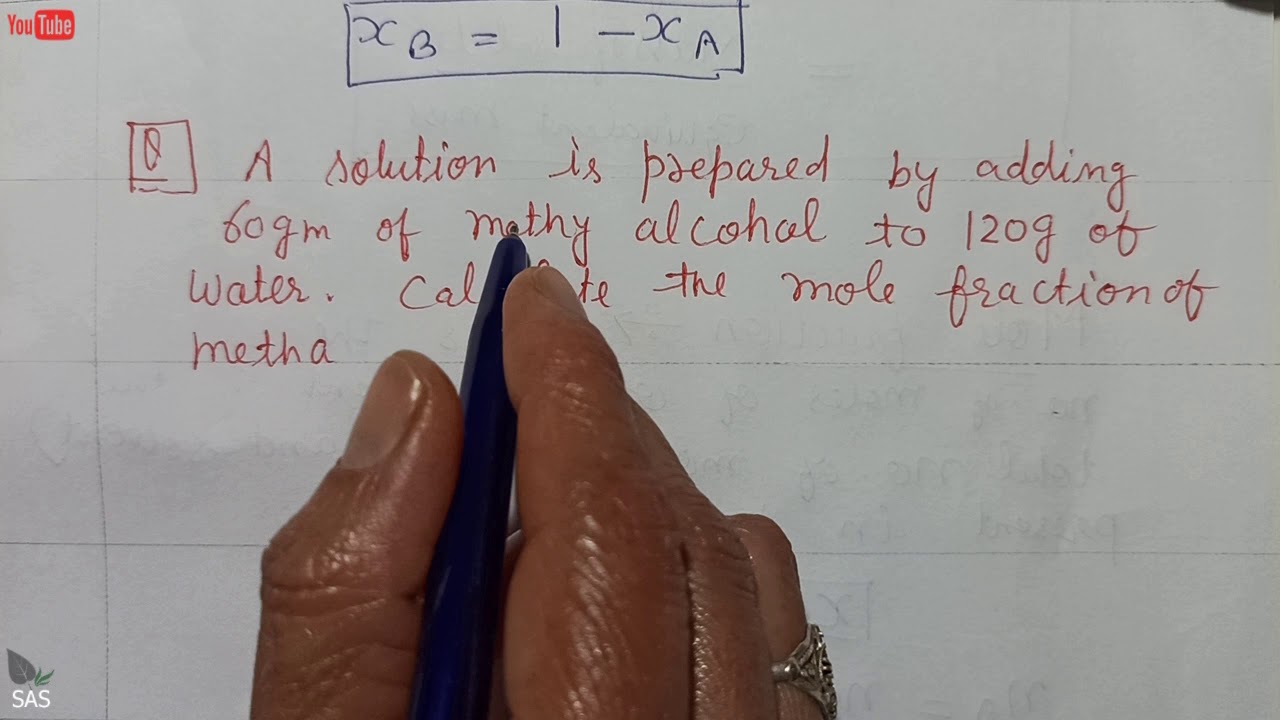 YouTube
x_B = 1 - x_A
Q A solution is prepared by adding
60gm of methy alcohal to 120g of
water. Cal te the mole fraction of
metha
SAS